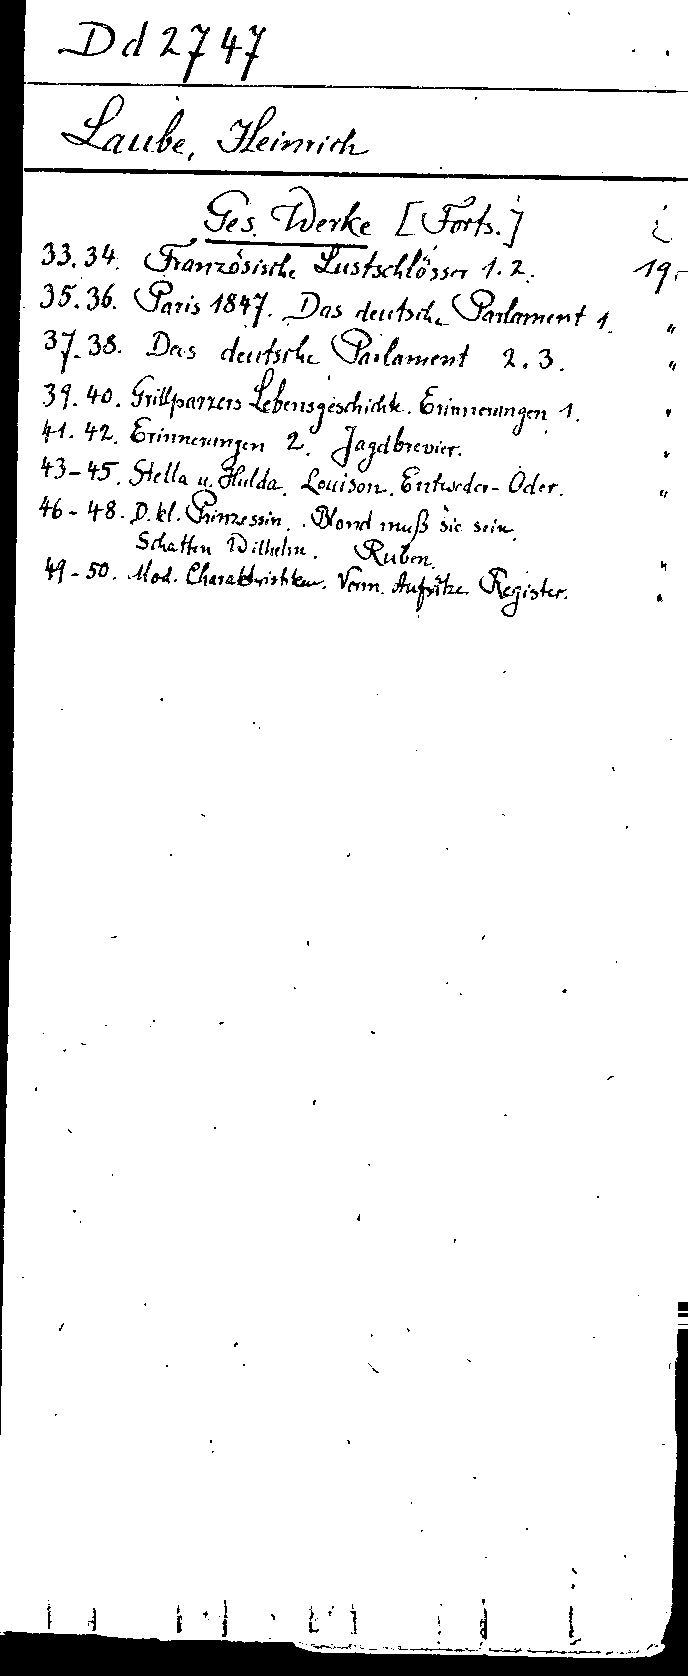 Dd 2747
Laube, Heinrich
Ges. Werke [Forts.]
33.34. Französische Lustschlösser 1.2. 19
35.36. Paris 1847. Das deutsche Parlament 1. "
37.38. Das deutsche Parlament 2.3. "
39.40. Grillparzers Lebensgeschichte. Erinnerungen 1. "
41.42. Erinnerungen 2. Jagdbrevier. "
43-45. Stella u. Hulda. Louison. Entweder-Oder. "
46-48. D. kl. Prinzessin. Blond muß sie sein.
Schatten Wilhelm. Ruben. "
49-50. Mod. Charakteristiken. Verm. Aufsätze. Register. "